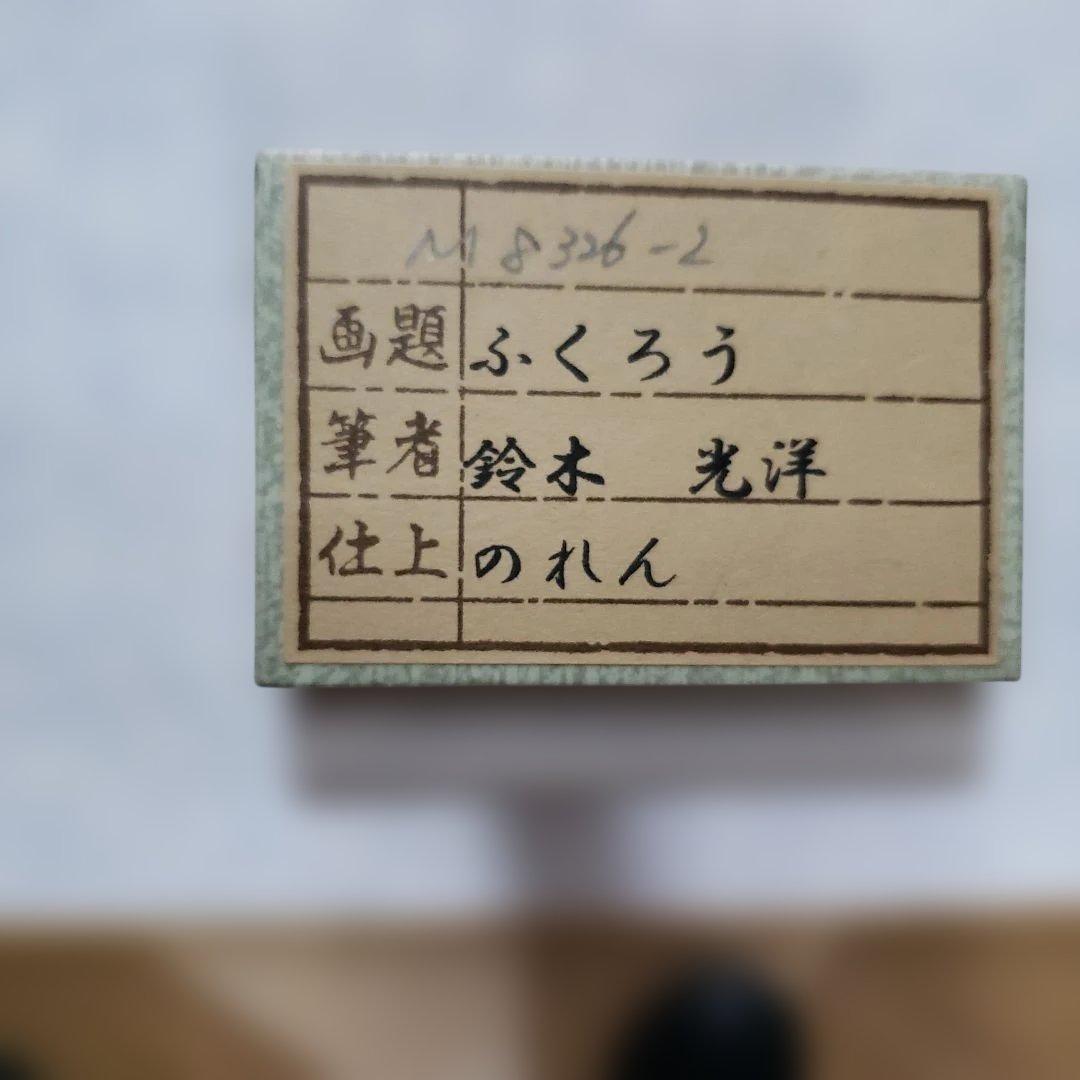 M 8326-2
画題 ふくろう
筆者 鈴木 光洋
仕上 のれん